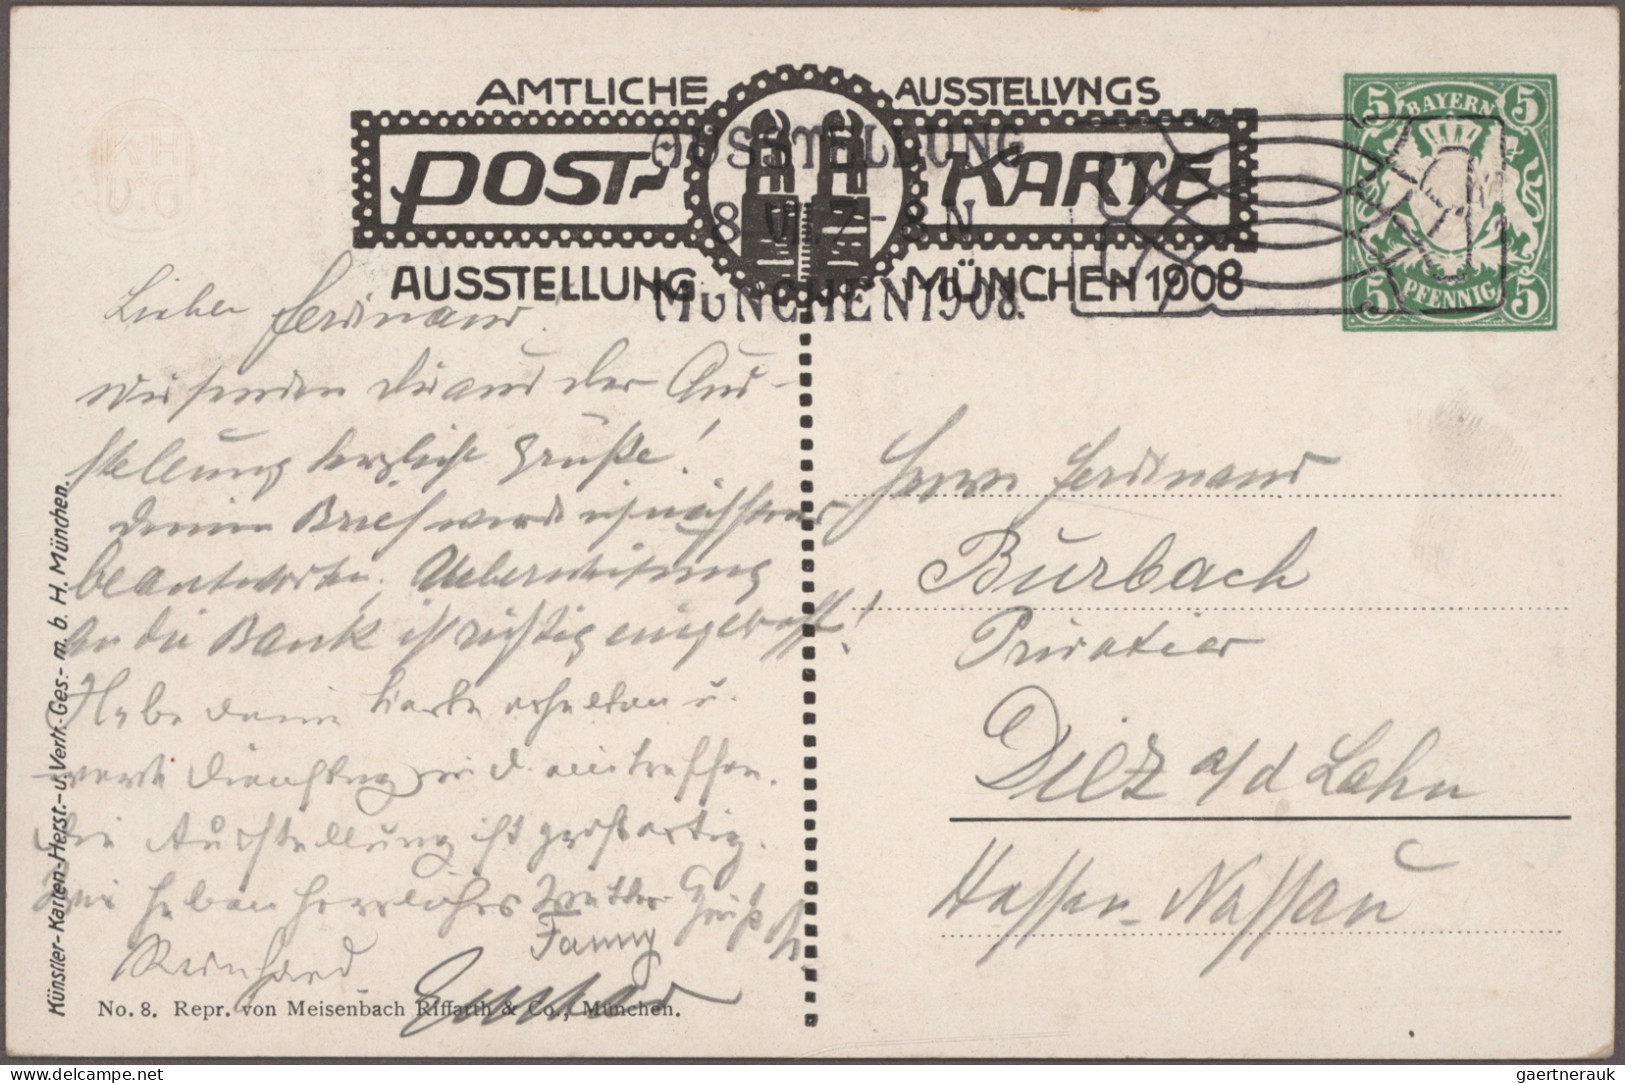 AMTLICHE AUSSTELLVNGS
POST- KARTE
AUSSTELLUNG MÜNCHEN 1908
AUSSTELLUNG
8 VI. 7-8 N
MÜNCHEN 1908.
BAYERN
5 5
5 5
PFENNIG
K H
V. G
Lieber Ferdinand!
Wir senden Dir aus der Aus-
stellung herzliche Grüße!
Deinen Brief werde ich nächstens
beantworten, Ueberweisung
an die Bank ist richtig eingetroff!
Habe deine Karte erhalten u.
werde Dienstag in D. eintreffen.
Die Ausstellung ist großartig.
Wir haben herrliches Wetter. Gruß
Fanny
Reinhard
Gustav
Herrn Ferdinand
Burbach
Privatier
Diez a/d Lahn
Hessen-Nassau
Künstler-Karten-Herst.- u. Vertr.-Ges.- m. b. H. München.
No. 8. Repr. von Meisenbach Riffarth & Co., München.
gaertnerauk